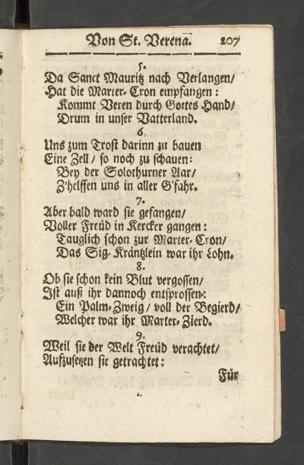 Von St. Verena. 207
5.
Da Sanct Mauritz nach Verlangen/
Hat die Marter-Cron empfangen:
Kommt Veren durch Gottes Hand/
Drum in unser Vatterland.
6.
Uns zum Trost darinn zu bauen
Eine Zell/ so noch zu schauen:
Bey der Solothurner Aar/
Z'helffen uns in aller G'fahr.
7.
Aber bald ward sie gefangen/
Voller Freüd in Kercker gangen:
Tauglich schon zur Marter-Cron/
Das Sig-Kräntzlein war ihr Lohn.
8.
Ob sie schon kein Blut vergossen/
Ist auß ihr dannoch entsprossen:
Ein Palm-Zweig/ voll der Begierd/
Welcher war ihr Marter-Zierd.
9.
Weil sie der Welt Freüd verachtet/
Aufzusetzen sie getrachtet:
Für